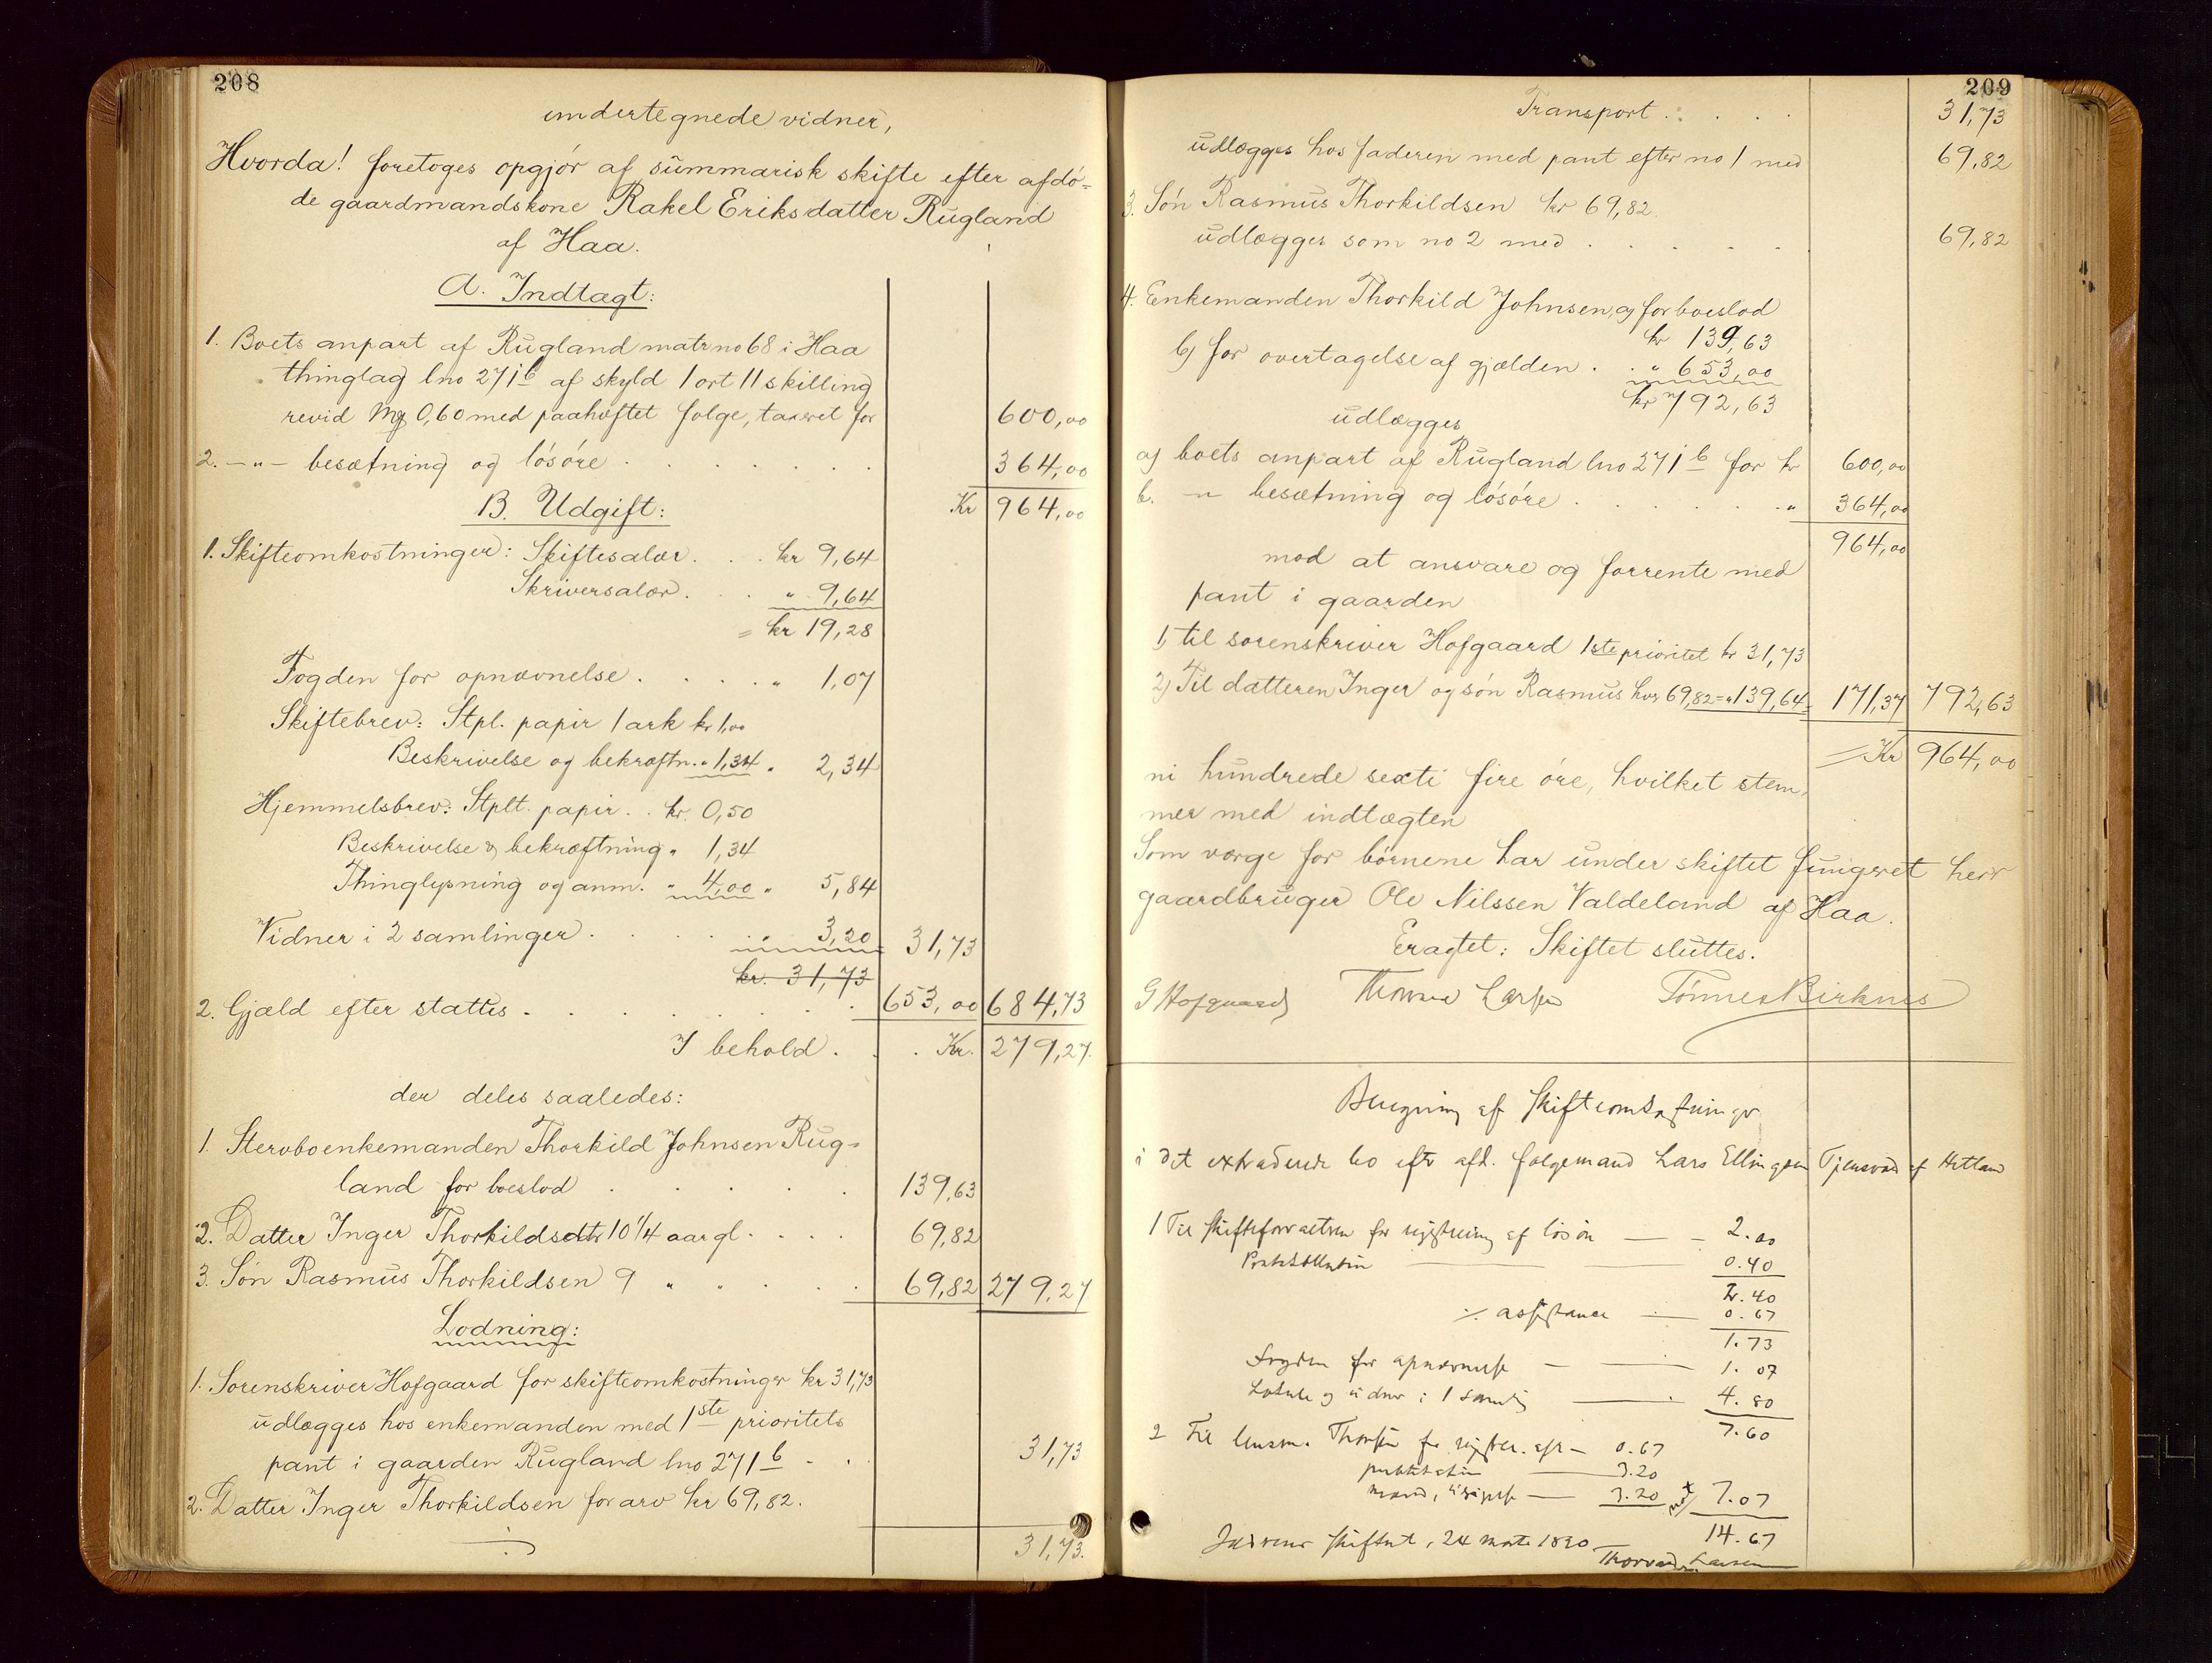 208
undertegnede vidner,
Hvorda! foretoges opgjør af summarisk skifte efter afdø-
de gaardmandskone Rakel Eriksdatter Rugland
af Haa.
A. Indtægt:
1. Boets anpart af Rugland matr no 68 i Haa
thinglag lno 271 b af skyld 1 ort 11 skilling
revid Mg 0,60 med paahæftet følge, taxeret for 600,00
2. -"- besætning og løsøre . . . . . . . 364,00
Kr 964,00
B. Udgift:
1. Skifteomkostninger: Skiftesalær. . . kr 9,64
Skriversalær. . . " 9,64
= kr 19,28
Fogden for opnævnelse . . . . " 1,07
Skiftebrev: Stpl. papir 1 ark kr 1,00
Beskrivelse og bekræftn. " 1,34 " 2,34
Hjemmelsbrev: Stplt. papir . . kr. 0,50
Beskrivelse & bekræftning " 1,34
Thinglysning og anm. " 4,00 " 5,84
Vidner i 2 samlinger . . . . . " 3,20 31,73
kr. 31,73
2. Gjæld efter stattus . . . . . . . . 653,00 684,73
I behold . . . Kr. 279,27.
der deles saaledes:
1. Stervboenkemanden Thorkild Johnsen Rug-
land for boeslod . . . . . 139,63
2. Datter Inger Thorkildsdtr 10 1/4 aar gl. . . . 69,82
3. Søn Rasmus Thorkildsen 9 " " . . . 69,82 279,27
Lodning:
1. Sorenskriver Hofgaard for skifteomkostninger kr 31,73
udlægges hos enkemanden med 1ste prioritets
pant i gaarden Rugland lno 271 b . . 31,73
2. Datter Inger Thorkildsen for arv kr 69,82.
31,73.
209
Transport . . . . 31,73
udlægges hos faderen med pant efter no 1 med 69,82
3. Søn Rasmus Thorkildsen kr 69,82
udlægges som no 2 med . . . . . 69,82
4. Enkemanden Thorkild Johnsen, a) for boeslod
kr 139,63
b) for overtagelse af gjælden . . " 653,00
kr 792,63
udlægges
a) boets anpart af Rugland lno 271 b for kr 600,00
b. -"- besætning og løsøre . . . . . . " 364,00
964,00
mod at ansvare og forrente med
pant i gaarden
1) til sorenskriver Hofgaard 1ste prioritet kr 31,73
2) Til datteren Inger og søn Rasmus hver 69,82 = " 139,64 = 171,37 792,63
= Kr 964,00
ni hundrede sexti fire øre, hvilket stem-
mer med indtægten
Som værge for børnene har under skiftet fungeret herr
gaardbruger Ole Nilssen Valdeland af Haa.
Eragtet: Skiftet sluttes.
G Hofgaard Thorvald Larsen Tønnes Birknes
Beregning af Skifteomkostninger
i det extraderede bo efter afd. følgemand Lars Ellingsen Tjensvold af Hetland
1 Til Skifteforvalteren for registrering af løsøre — 2.00
Protokollation — 0.40
2.40
⁒ assistance — 0.67
1.73
Fogden for opnævnelse — 1.07
Lokale og vidner i 1 samling — 4.80
7.60
2 Til lensm. Thorsen for register. efr — 0.67
protokolation — 3.20
mænd, — 3.20 7.07
14.67
Jæderens Skifteret, 24 marts 1890
Thorvald Larsen